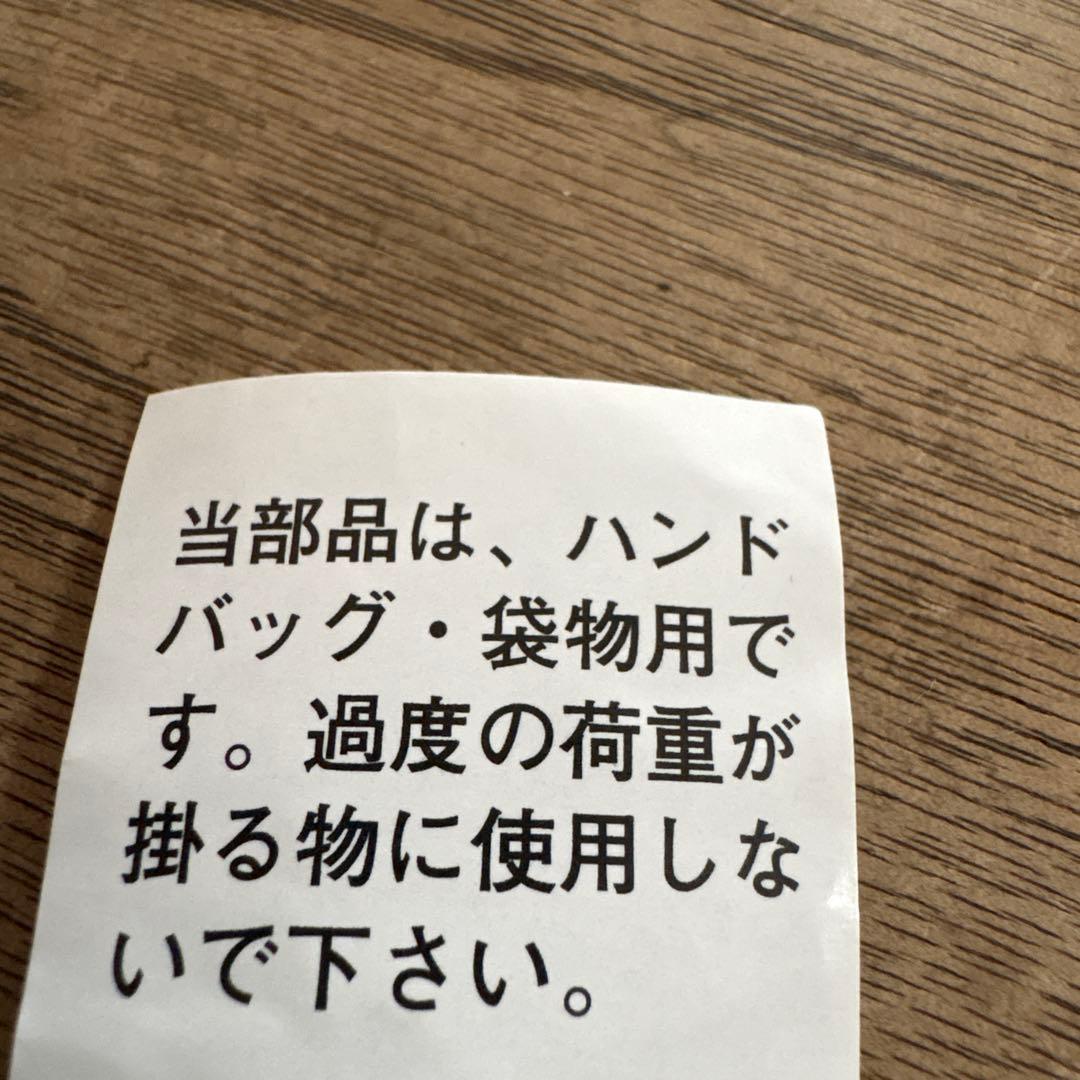 当部品は、ハンド
バッグ・袋物用で
す。過度の荷重が
掛る物に使用しな
いで下さい。